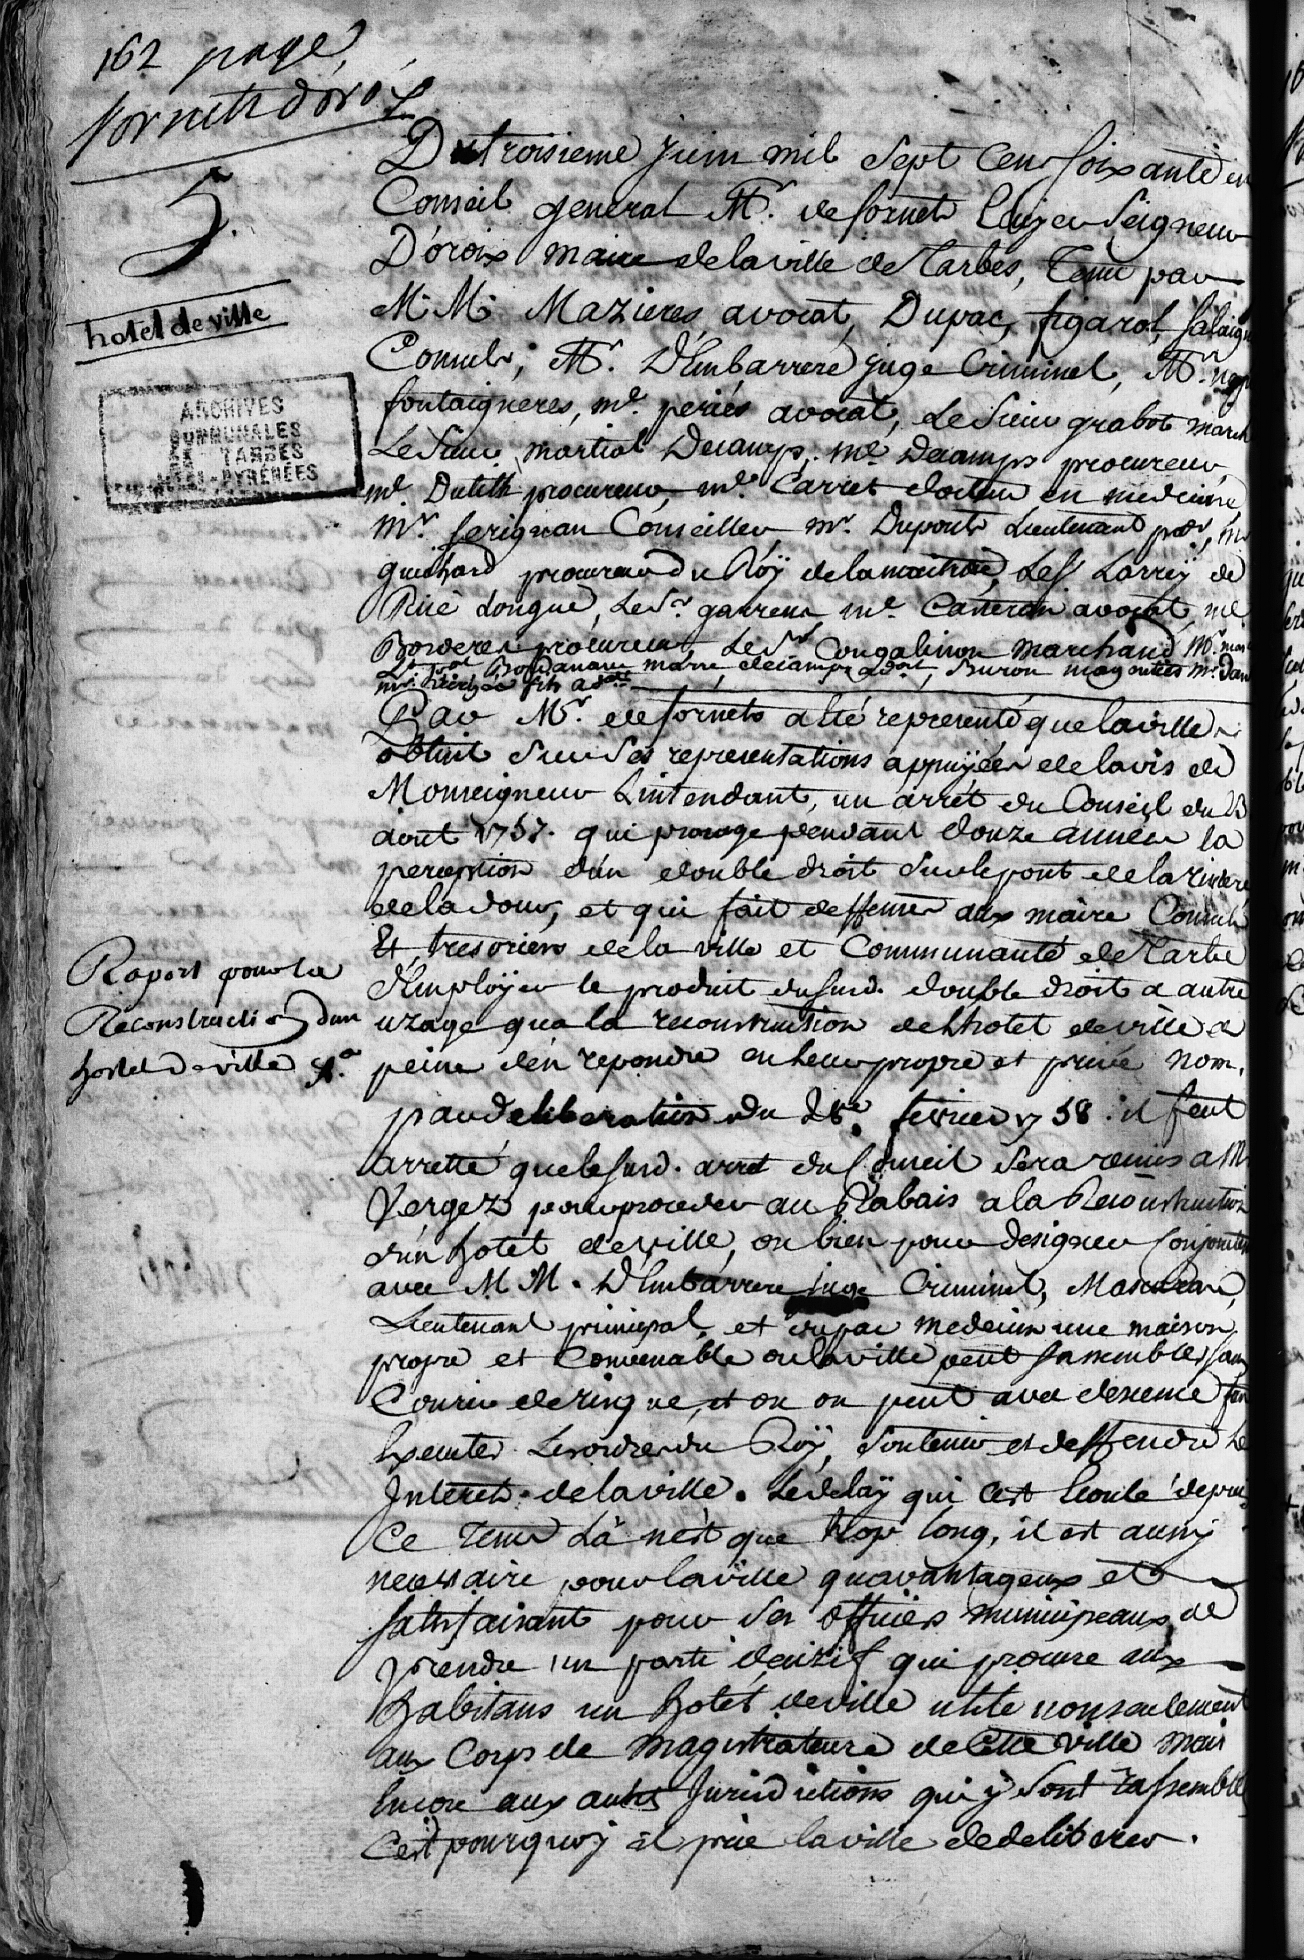 162 page
fornets d'oroix
5.
hotel de ville
ARCHIVES
COMMUNALES
DE TARBES
HTES-PYRÉNÉES
Du troisieme juin mil sept cens soixante en
Conseil general Mr. de fornets Ecuyer Seigneur
D'oroix maire de la ville de Tarbes, Tenu par
M.M. Mazieres, avocat, Dupac, figarol,
Consuls, Mr. D'Embarrere juge Criminel, Mr.
fontaigneres, me. periés avocat, Le Sieur grabot march
Le Sieur martial Decamps, me. Decamps procureur,
me Dutilh procureur, me. Carret docteur en medecine,
Mr. serignan Conseiller, Mr. Duponts Lieutenant
guichard procureur Du Roÿ de la maitrise, Le Sr Larreÿ de
Ruë Longue, Le Sr. me. avocat, me.
Borderes procureur, Le Sr marchand, Mr.
maire decamps adt,
fils adt
Par Mr. de fornets a eté representé que la ville
obtint sur ses representations appuÿées de lavis de
Monseigneur Lintendant, un arrét du Conseil du 23
aout 1757. qui proroge pendant douze années la
perception d'un double droit sur le pont de la riviere
de ladour, et qui fait deffenses aux maire Consuls
Et tresoriers de la ville et Communauté de Tarbe
d'Emploÿer le produit dususd. double droit a autre
uzage qua la reconstruction de lhotel de ville a
peine d'en repondre en leur propre et privé nom.
Raport pour la
Reconstruction d'un
hotel de ville
par deliberation du 28e. fevrier 1758. il feut
arretté que le susd. arret du Conseil sera remis a Mr
Vergez pour proceder au Rabais a la Reconstruction
d'un hotel de ville, ou bien pour designer Conjointem
avec M M. D'Embarrere juge Criminel, Mascaran,
Lieutenant principal, et dupac medecin une maison
propre et Convenable ou la ville peut sassembler sans
Courir de risque, et ou on peut avec descence faire
Executer Les ordres du Roÿ, soutenir et deffendre Les
Interets de la ville. Le delaÿ qui cest Ecoulé depuis
Ce Tems là nest que trop long, il est aussy
necessaire pour la ville quavantageux et
satisfaisant pour ses officiers municipeaux de
prendre un parti decizif qui procure aux
habitans un hotel de ville utile non seulement
aux Corps de magistrature de Cette ville mais
Encore aux autres Jurisdictions qui ÿ sont rassemblées
Cest pourquoy il prie la ville de deliberer.